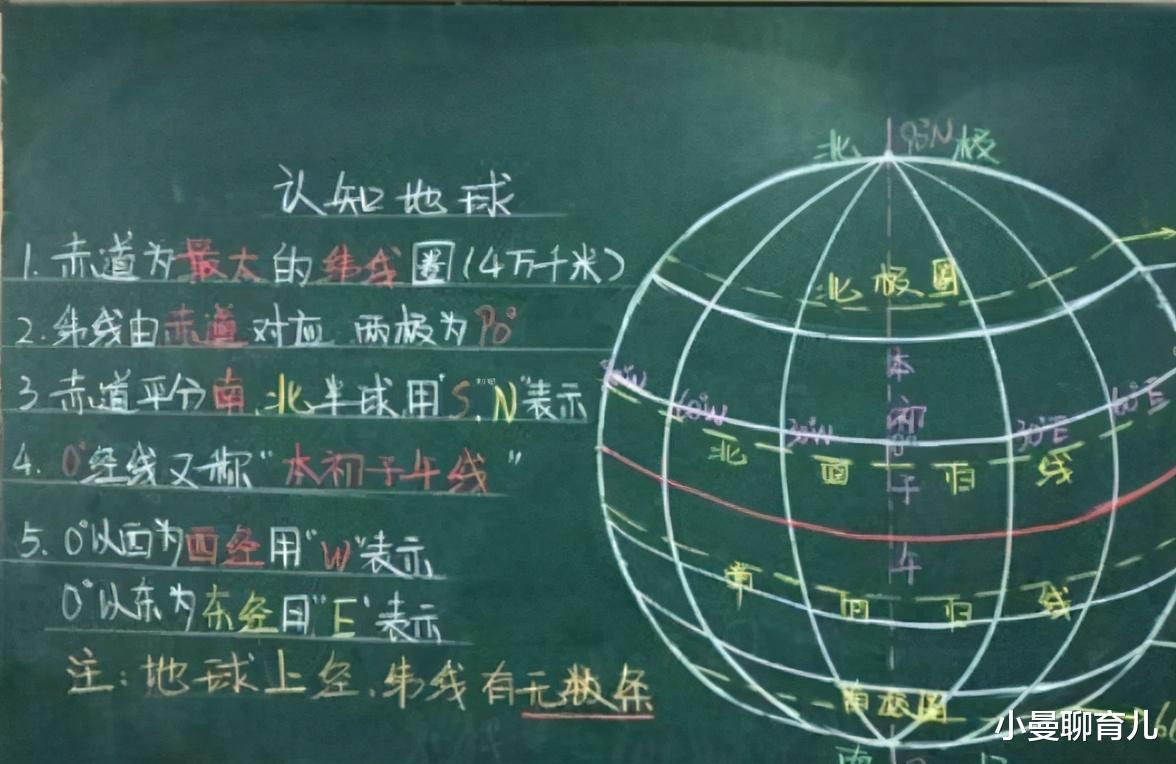 认知地球
1. 赤道为最大的纬线圈(4万千米)
2. 纬线由赤道对应 两极为90°
3 赤道平分南、北半球用"S、N"表示
4. 0°经线又称"本初子午线"
5. 0°以西为西经用"W"表示
0°以东为东经用"E"表示
注:地球上经、纬线有无数条
北 90°N 极
北极圈
本初子午
60°W 30°W 30°E 60°E
北回归线
南回归线
南极圈
南
小曼聊育儿